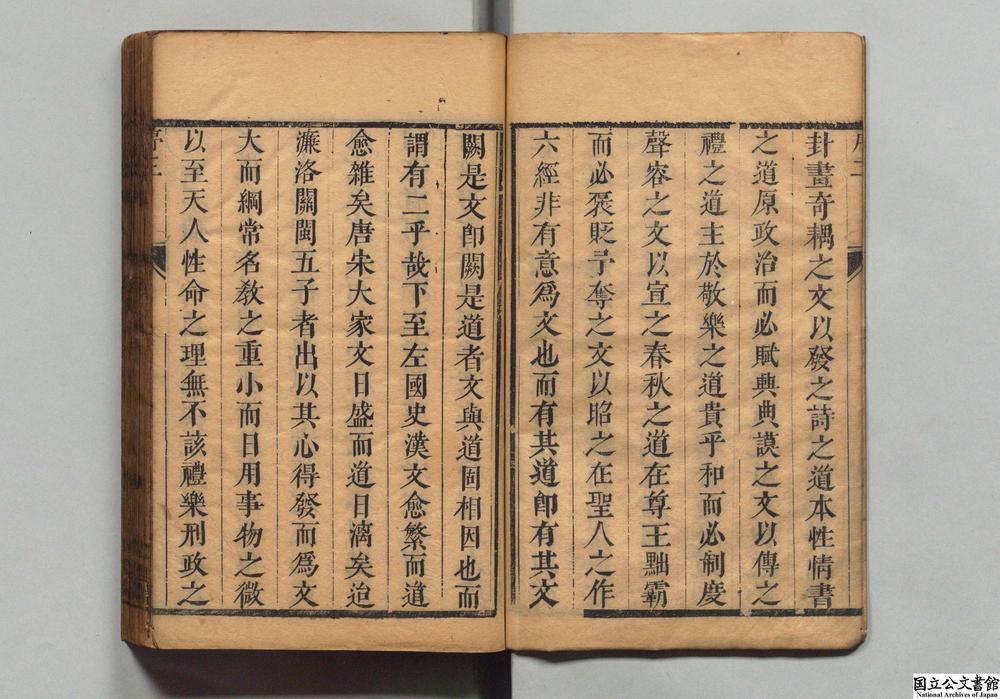 卦畫奇耦之文以發之詩之道本性情書
之道原政治而必賦興典謨之文以傳之
禮之道主於敬樂之道貴乎和而必制度
聲容之文以宣之春秋之道在尊王黜霸
而必褒貶予奪之文以昭之在聖人之作
六經非有意爲文也而有其道卽有其文
闕是文卽闕是道者文與道固相因也而
謂有二乎哉下至左國史漢文愈繁而道
愈雜矣唐宋大家文日盛而道日漓矣迨
濂洛關閩五子者出以其心得發而爲文
大而綱常名敎之重小而日用事物之微
以至天人性命之理無不該禮樂刑政之
国立公文書館
National Archives of Japan